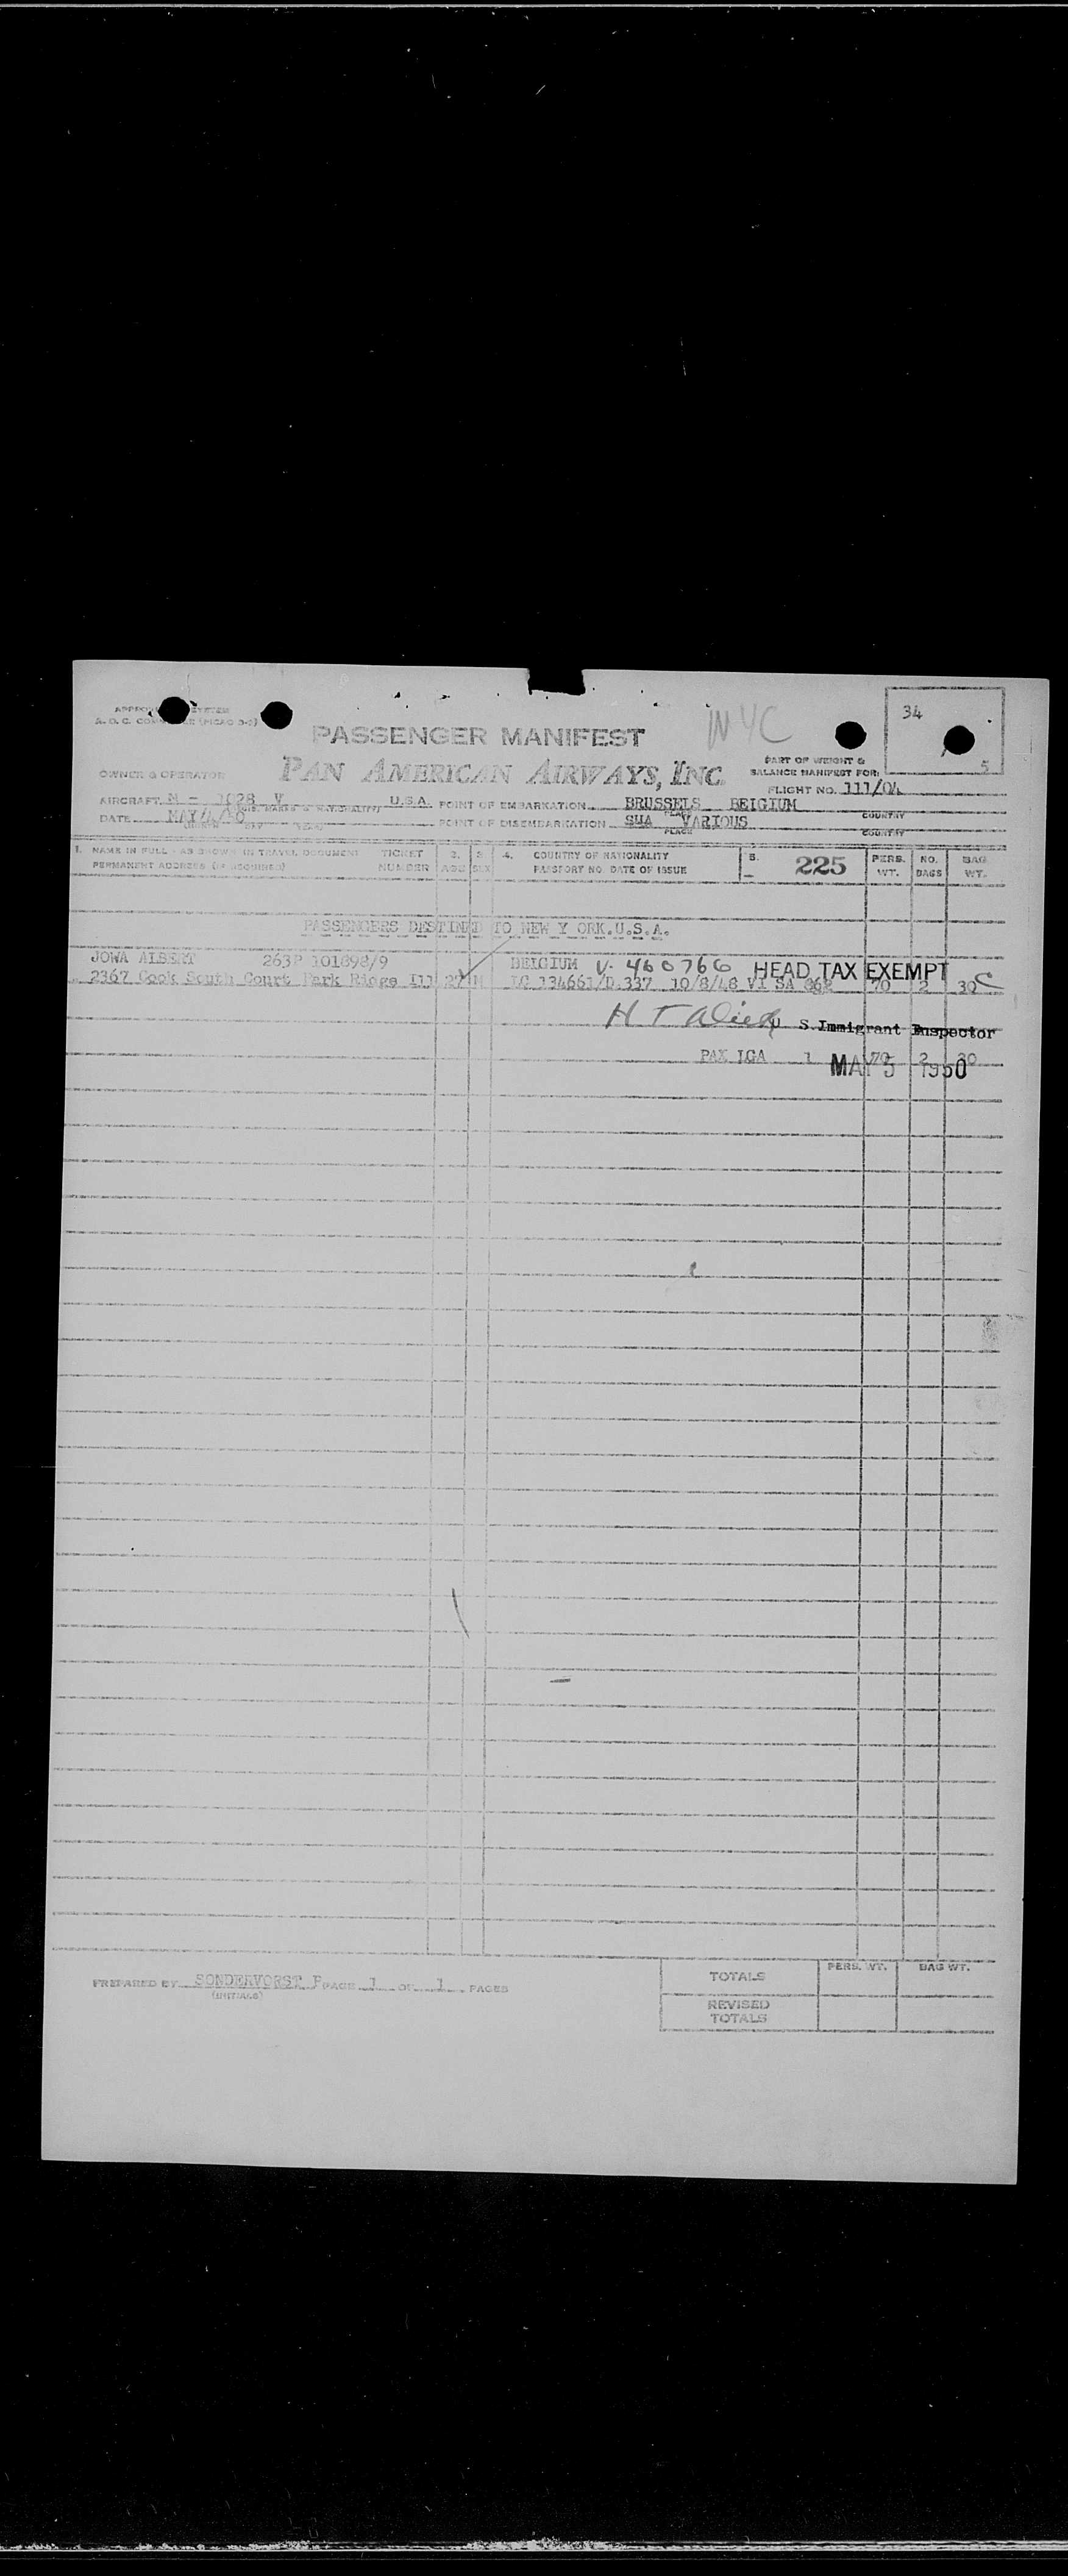 34
5
NYC
PASSENGER MANIFEST
PAN AMERICAN AIRWAYS, INC.
PART OF WEIGHT &
BALANCE MANIFEST FOR:
FLIGHT NO. 111/04
OWNER & OPERATOR
AIRCRAFT N - 1028 V U.S.A. POINT OF EMBARKATION BRUSSELS BELGIUM
PLACE COUNTRY
DATE MAY/4/50 POINT OF DISEMBARKATION SUA VARIOUS
PLACE COUNTRY
1. NAME IN FULL - AS SHOWN IN TRAVEL DOCUMENT TICKET 2. 3. 4. COUNTRY OF NATIONALITY 5. 225 PERS. NO. BAG
PERMANENT ADDRESS (IF REQUIRED) NUMBER AGE SEX PASSPORT NO. DATE OF ISSUE WT. BAGS WT.
PASSENGERS DESTINED TO NEW Y ORK.U.S.A.
JOWA ALBERT 263P 101898/9 BELGIUM V. 460766 HEAD TAX EXEMPT
2367 Cook South Court Park Ridge Ill 27 M LG 134661/D.337 10/8/48 VI SA 862 70 2 30
H T U S Immigrant Inspector
PAX LGA 1 70 2 30
MAY 5 1950
PREPARED BY SONDERVORST F PAGE 1 OF 1 PAGES
(INITIALS)
TOTALS PERS. WT. BAG WT.
REVISED
TOTALS